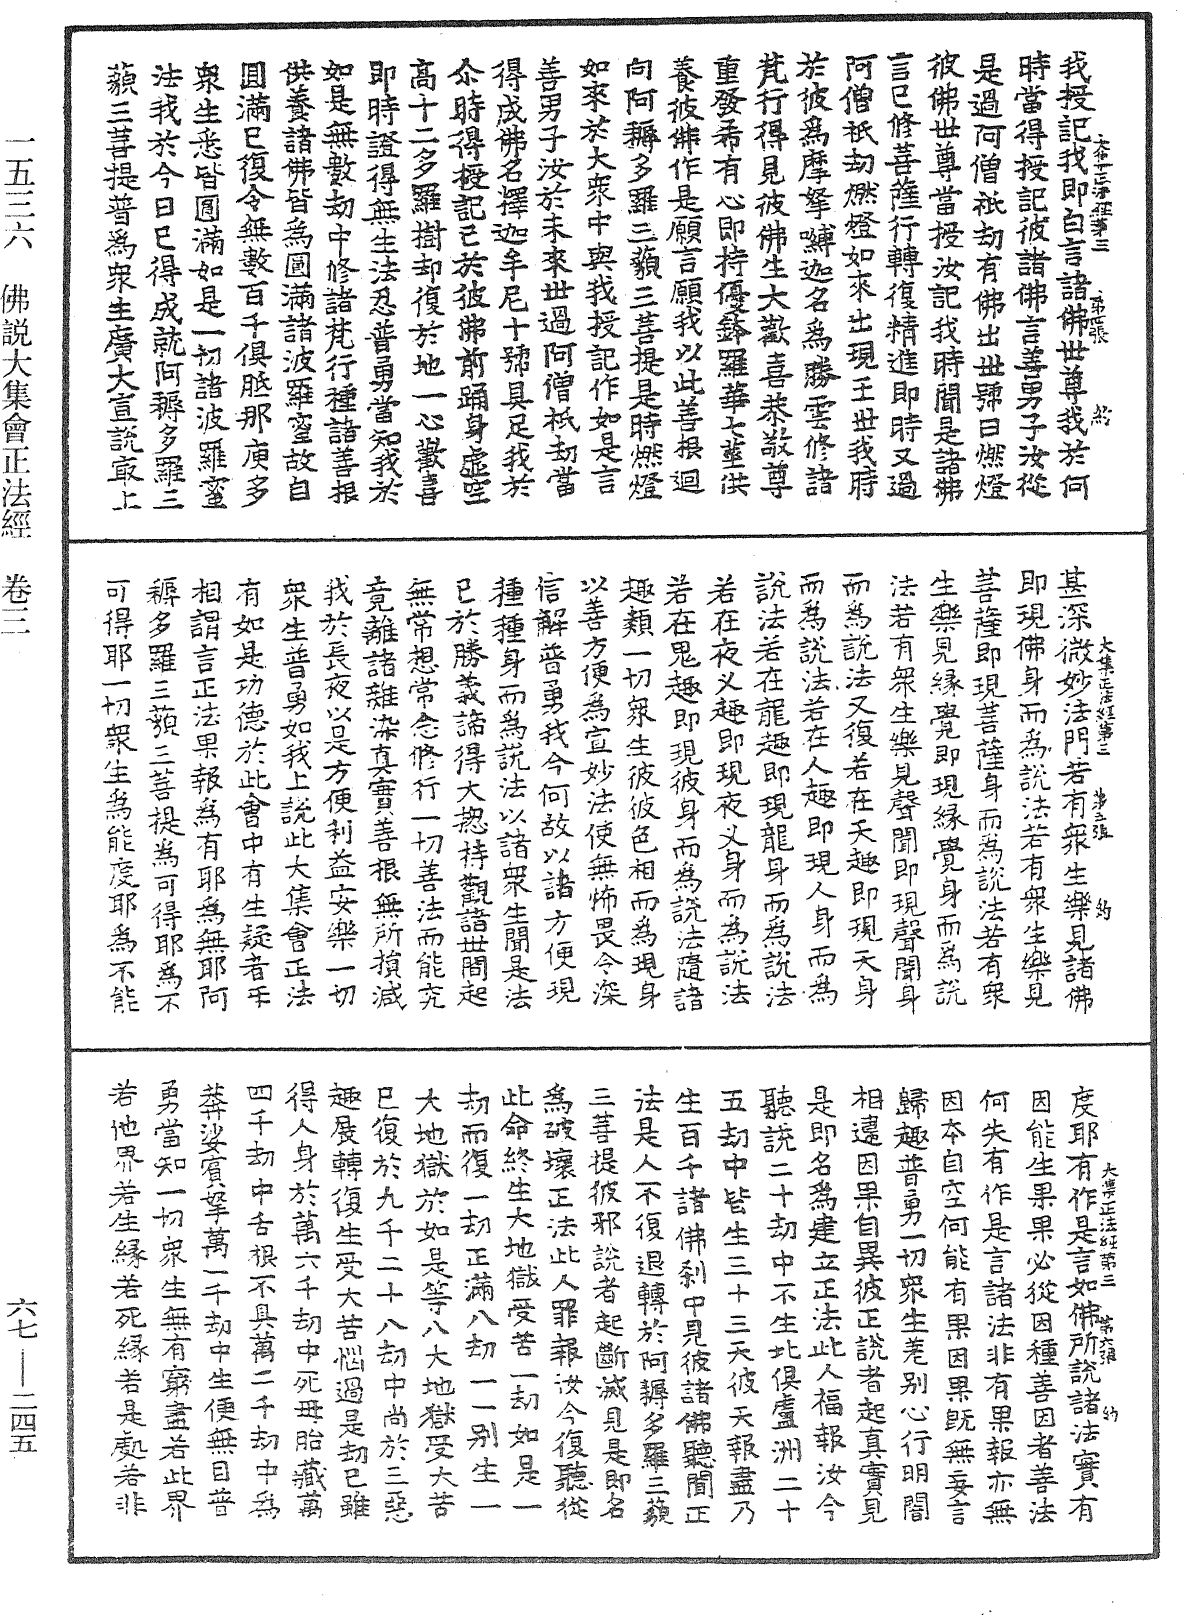 我授記我即白言諸佛世尊我於何
時當得授記彼諸佛言善男子汝從
是過阿僧祇劫有佛出世號曰燃燈
彼佛世尊當授汝記我時聞是諸佛
言已修菩薩行轉復精進即時又過
阿僧祇劫燃燈如來出現王世我時
於彼爲摩拏嚩迦名爲勝雲修諸
梵行得見彼佛生大歡喜恭敬尊
重發希有心即持優鉢羅華七莖供
養彼佛作是願言願我以此善根迴
向阿耨多羅三藐三菩提是時燃燈
如來於大衆中與我授記作如是言
善男子汝於未來世過阿僧祇劫當
得成佛名釋迦牟尼十號具足我於
尒時得授記已於彼佛前踊身虛空
高十二多羅樹却復於地一心歡喜
即時證得無生法忍普勇當知我於
如是無數劫中修諸梵行種諸善根
供養諸佛皆爲圓滿諸波羅蜜故自
圓滿已復令無數百千俱胝那庾多
衆生悉皆圓滿如是一切諸波羅蜜
法我於今日已得成就阿耨多羅三
藐三菩提普爲衆生廣大宣說㝡上
大集正法經第三 第四張 約
甚深微妙法門若有衆生樂見諸佛
即現佛身而爲說法若有衆生樂見
菩薩即現菩薩身而爲說法若有衆
生樂見緣覺即現緣覺身而爲說
法若有衆生樂見聲聞即現聲聞身
而爲說法又復若在天趣即現天身
而爲說法若在人趣即現人身而爲
說法若在龍趣即現龍身而爲說法
若在夜叉趣即現夜叉身而爲說法
若在鬼趣即現彼身而爲說法隨諸
趣類一切衆生彼彼色相而爲現身
以善方便爲宣妙法使無怖畏令深
信解普勇我今何故以諸方便現
種種身而爲說法以諸衆生聞是法
已於勝義諦得大揔持觀諸世間起
無常想常念修行一切善法而能究
竟離諸雜染真實善根無所損減
我於長夜以是方便利益安樂一切
衆生普勇如我上說此大集會正法
有如是功德於此會中有生疑者㸦
相謂言正法果報爲有耶爲無耶阿
耨多羅三藐三菩提爲可得耶爲不
可得耶一切衆生爲能度耶爲不能
大集正法經第三 第五張 約
度耶有作是言如佛所說諸法實有
因能生果果必從因種善因者善法
何失有作是言諸法非有果報亦無
因本自空何能有果因果旣無妄言
歸趣普勇一切衆生差別心行明闇
相違因果自異彼正說者起真實見
是即名爲建立正法此人福報汝今
聽說二十劫中不生北俱盧洲二十
五劫中皆生三十三天彼天報盡乃
生百千諸佛剎中見彼諸佛聽聞正
法是人不復退轉於阿耨多羅三藐
三菩提彼邪說者起斷滅見是即名
爲破壞正法此人罪報汝今復聽從
此命終生大地獄受苦一劫如是一
劫而復一劫正滿八劫一一別生一
大地獄於如是等八大地獄受大苦
已復於九千二十八劫中尚於三惡
趣展轉復生受大苦惱過是劫已雖
得人身於萬六千劫中死母胎藏萬
四千劫中舌根不具萬二千劫中爲
莽娑賓拏萬一千劫中生便無目普
勇當知一切衆生無有窮盡若此界
若他界若生緣若死緣若是處若非
大集正法經第三 第六張 約
一五三六 佛説大集會正法經 卷三
六七—二四五